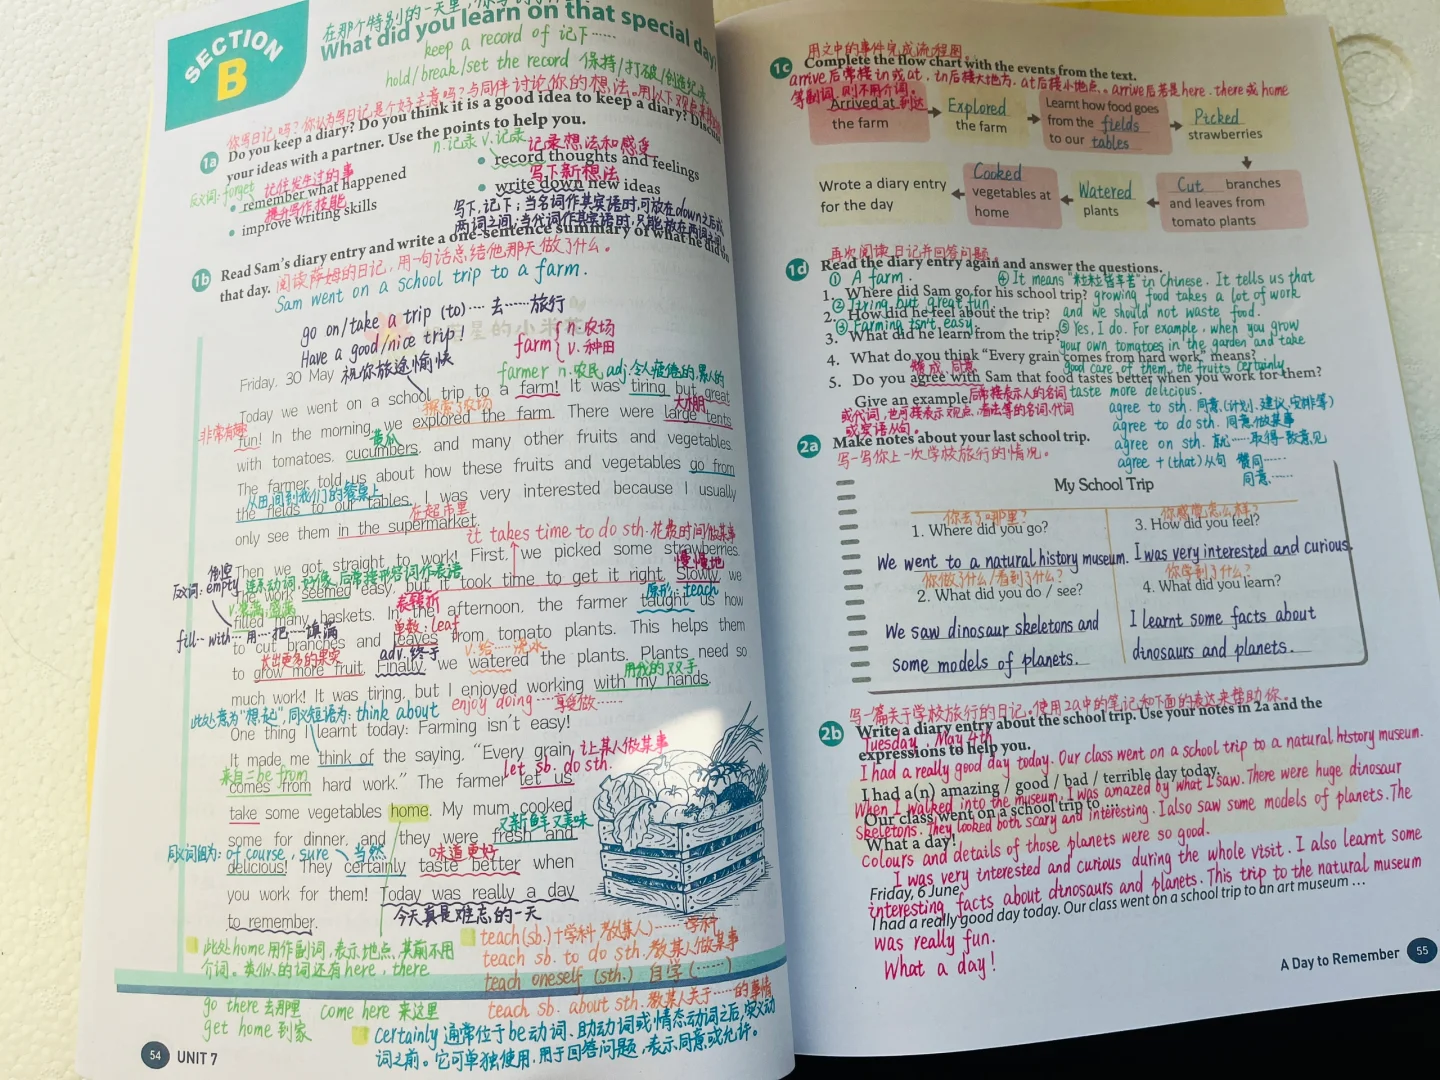 SECTION
B
在那个特别的一天里,
What did you learn on that special day?
keep a record of 记下……
hold/break/set the record 保持/打破/创造纪录
你写日记吗?你认为写日记是个好主意吗?与同伴讨论你的想法。用以下观点来
1a
Do you keep a diary? Do you think it is a good idea to keep a diary? Discuss
your ideas with a partner. Use the points to help you.
n.记录 v.记录
反义词: forget
记住发生过的事
• remember what happened
提升写作技能
• improve writing skills
记录想法和感受
• record thoughts and feelings
写下新想法
• write down new ideas
写下,记下;当名词作其宾语时,可放在down之后或
两词之间;当代词作其宾语时,只能放在两词之间。
1b
Read Sam's diary entry and write a one-sentence summary of what he did on
that day. 阅读萨姆的日记,用一句话总结他那天做了什么。
Sam went on a school trip to a farm.
go on/take a trip (to)…… 去……旅行
Have a good/nice trip!
祝你旅途愉快
farm { n.农场
v. 种田
farmer n.农民
adj.令人疲倦的,累人的
Friday, 30 May
Today we went on a school trip to a farm! It was tiring but great
探索了农场
大棚
非常有趣
fun! In the morning, we explored the farm. There were large tents
黄瓜
with tomatoes, cucumbers, and many other fruits and vegetables.
The farmer told us about how these fruits and vegetables go from
从田间到我们的餐桌上
the fields to our tables. I was very interested because I usually
在超市里
only see them in the supermarket.
it takes time to do sth.花费时间做某事
Then we got straight to work! First, we picked some strawberries.
倒空
反义词: empty
连系动词,好像,后常接形容词作表语
慢慢地
The work seemed easy, but it took time to get it right. Slowly, we
v.装满,盛满
表转折
原形: teach
filled many baskets. In the afternoon, the farmer taught us how
fill… with… 用…把……填满
单数: leaf
to cut branches and leaves from tomato plants. This helps them
长出更多的果实
adv.终于
v.给……浇水
to grow more fruit. Finally, we watered the plants. Plants need so
用我的双手
much work! It was tiring, but I enjoyed working with my hands.
此处意为"想起",同义短语为: think about
enjoy doing……享受做……
One thing I learnt today: Farming isn't easy!
It made me think of the saying, "Every grain
让某人做某事
来自=be from
let sb. do sth.
comes from hard work." The farmer let us
take some vegetables home. My mum cooked
又新鲜又美味
some for dinner, and they were fresh and
同义词组为: of course, sure
当然
味道更好
delicious! They certainly taste better when
you work for them! Today was really a day
to remember.
今天真是难忘的一天
此处home用作副词,表示地点,其前不用
介词。类似的词还有here, there
go there 去那里 come here 来这里
get home 到家
teach (sb.)+学科 教(某人)……学科
teach sb. to do sth. 教某人做某事
teach oneself (sth.) 自学(……)
teach sb. about sth. 教某人关于……的事情
certainly 通常位于be动词、助动词或情态动词之后,实义动
词之前。它可单独使用,用于回答问题,表示同意或允许。
54
UNIT 7
用文中的事件完成流程图
1c
Complete the flow chart with the events from the text.
arrive后常接in或at. in后接大地方. at后接小地点.。arrive后若是here. there或home
等副词,则不用介词。
Arrived at 到达
the farm
Explored
the farm
Learnt how food goes
from the fields
to our tables
Picked
strawberries
Cut branches
and leaves from
tomato plants
Watered
plants
Cooked
vegetables at
home
Wrote a diary entry
for the day
再次阅读日记并回答问题
1d
Read the diary entry again and answer the questions.
① A farm.
④ It means "粒粒皆辛苦" in Chinese. It tells us that
1. Where did Sam go for his school trip?
growing food takes a lot of work
② Tiring but great fun.
2. How did he feel about the trip?
and we should not waste food.
③ Farming isn't easy.
3. What did he learn from the trip?
⑤ Yes, I do. For example, when you grow
your own tomatoes in the garden and take
4. What do you think "Every grain comes from hard work" means?
赞成,同意
good care of them, the fruits certainly
5. Do you agree with Sam that food tastes better when you work for them?
Give an example.
后常接表示人的名词
taste more delicious.
或代词,也可接表示观点、看法等的名词、代词
或宾语从句。
agree to sth. 同意(计划、建议、安排等)
agree to do sth. 同意做某事
agree on sth. 就……取得一致意见
agree + (that)从句 赞同……
同意……
2a
Make notes about your last school trip.
写一写你上一次学校旅行的情况。
My School Trip
你去了哪里?
1. Where did you go?
We went to a natural history museum.
你做了什么/看到了什么?
2. What did you do / see?
We saw dinosaur skeletons and
some models of planets.
你感觉怎么样?
3. How did you feel?
I was very interested and curious.
你学到了什么?
4. What did you learn?
I learnt some facts about
dinosaurs and planets.
写一篇关于学校旅行的日记。使用2a中的笔记和下面的表达来帮助你。
2b
Write a diary entry about the school trip. Use your notes in 2a and the
expressions to help you.
Tuesday, May 4th
I had a really good day today. Our class went on a school trip to a natural history museum.
I had a(n) amazing / good / bad / terrible day today.
When I walked into the museum, I was amazed by what I saw. There were huge dinosaur
Our class went on a school trip to …
skeletons. They looked both scary and interesting. I also saw some models of planets. The
What a day!
colours and details of those planets were so good.
I was very interested and curious during the whole visit. I also learnt some
Friday, 6 June
interesting facts about dinosaurs and planets. This trip to the natural museum
I had a really good day today. Our class went on a school trip to an art museum …
was really fun.
What a day!
A Day to Remember
55